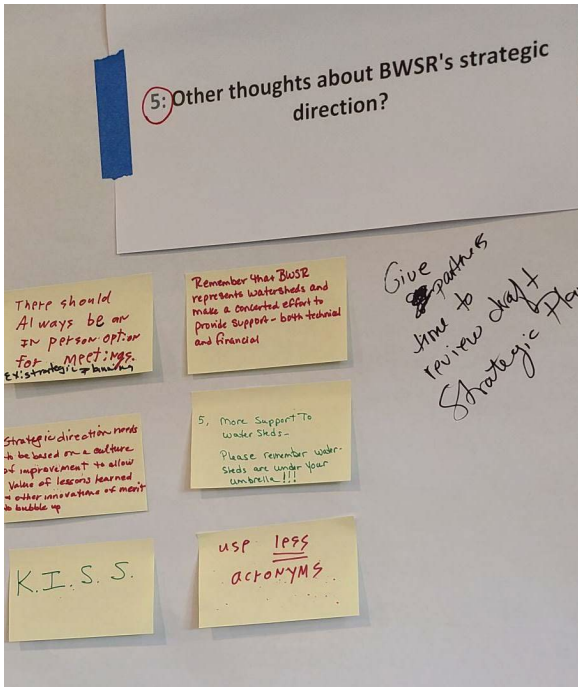 5: Other thoughts about BWSR's strategic
direction?
There should
Always be an
IN person option
for MEETINGS.
Ex: strategic planning
Remember that BWSR
represents watersheds and
make a concerted effort to
provide support - both technical
and financial
Give
partners
time to
review draft
Strategic Plan
Strategic direction needs
to be based on a culture
of improvement to allow
value of lessons learned
+ other innovations of merit
to bubble up
5, More Support To
water sheds -
Please remember water-
sheds are under your
umbrella!!!
K.I.S.S.
use less
acronyms